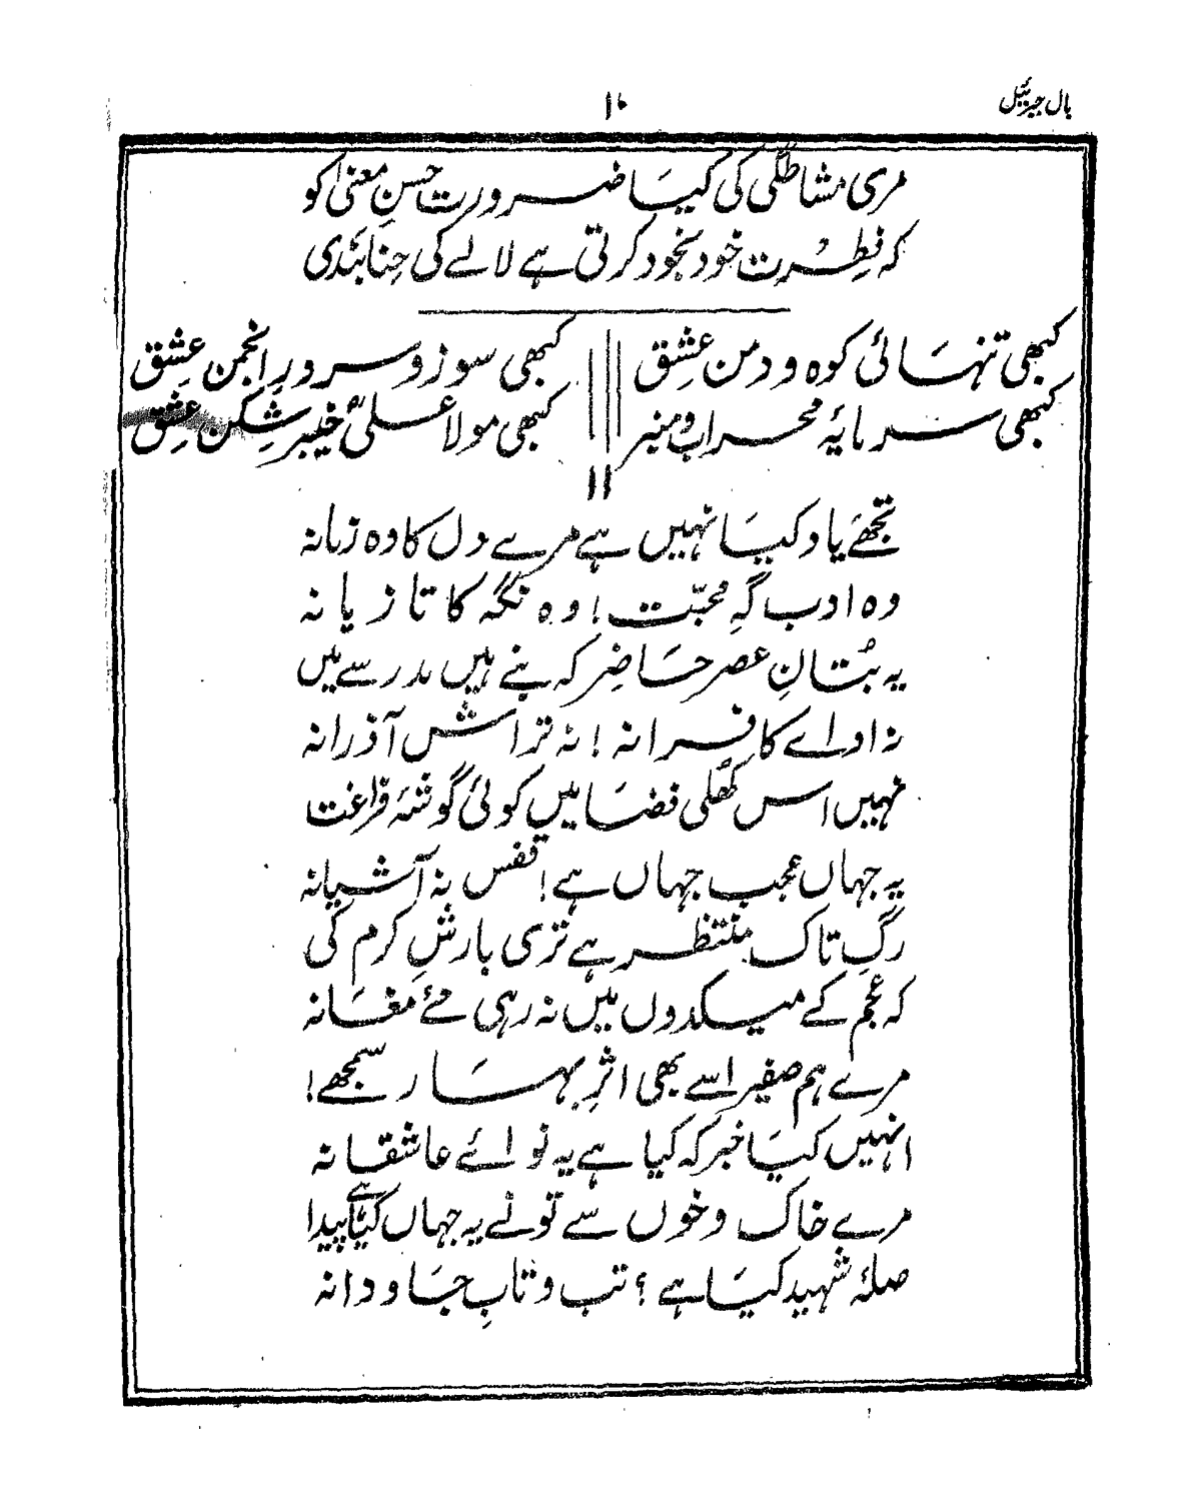 بال جبریل
۱۰
مری مشاطگی کی کیا ضرورت حسنِ معنی کو
کہ فطرت خود بخود کرتی ہے لالے کی حنا بندی
کبھی تنہائی کوہ و دمن عشق
کبھی سوز و سرور انجمن عشق
کبھی سرمایۂ محراب و منبر
کبھی مولا علیؓ خیبر شکن عشق
۱۱
تجھے یاد کیا نہیں ہے مرے دل کا وہ زمانہ
وہ ادب گہِ محبّت! وہ نگہ کا تازیانہ
یہ بُتانِ عصر حاضر کہ بنے ہیں مدرسے میں
نہ اداے کافرانہ! نہ تراش آذرانہ
نہیں اس کھُلی فضا میں کوئی گوشۂ فراغت
یہ جہاں عجب جہاں ہے! قفس نہ آشیانہ
رگِ تاک منتظر ہے تری بارشِ کرم کی
کہ عجم کے میکدوں میں نہ رہی مئے مغانہ
مرے ہم صفیر اسے بھی اثرِ بہار سمجھے!
انہیں کیا خبر کہ کیا ہے یہ نوائے عاشقانہ
مرے خاک و خوں سے تونے یہ جہاں کیا ہے پیدا
صلۂ شہید کیا ہے؟ تب و تابِ جاودانہ